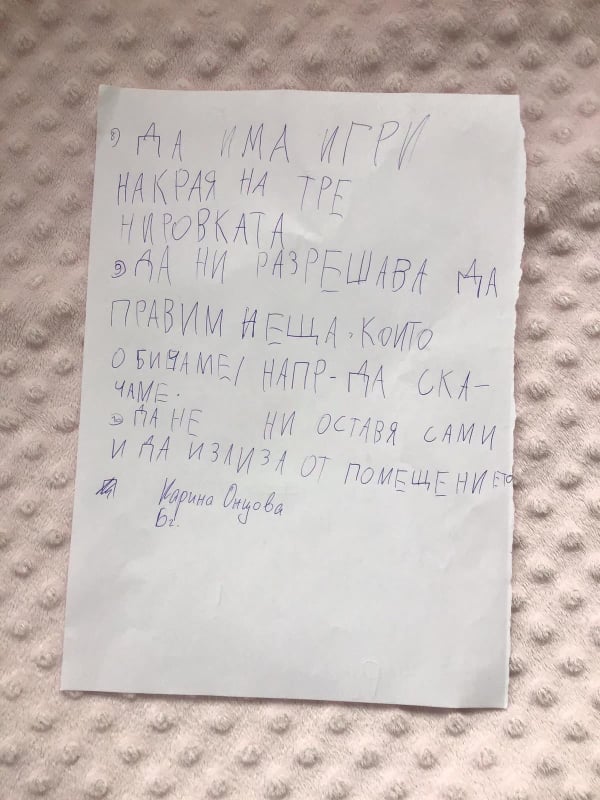 1) ДА ИМА ИГРИ
НАКРАЯ НА ТРЕ
НИРОВКАТА
2) ДА НИ РАЗРЕШАВА ДА
ПРАВИМ НЕЩА, КОИТО
ОБИЧАМЕ/ НАПР-ДА СКА-
ЧАМЕ.
3) ДА НЕ НИ ОСТАВЯ САМИ
И ДА ИЗЛИЗА ОТ ПОМЕЩЕНИЕТО
Карина Онцова
6г.